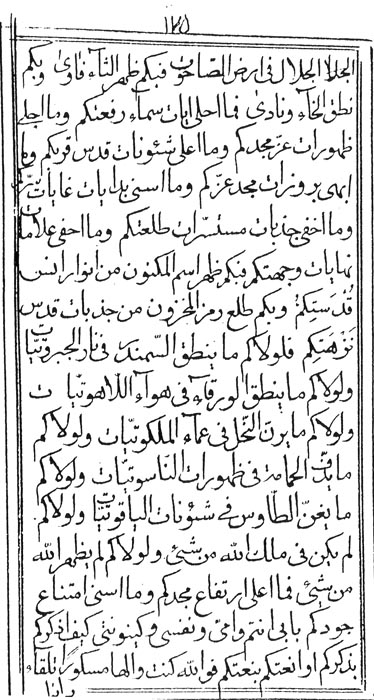 ١٢٥
الجلال الجلال فی ارض الصاحوت فبکم ظهر الثآء فاوی وبکم
نطق الخآء ونادی فما احلی ایات سمآء رفعتکم وما اجلی
ظهورات عز مجدکم وما اعلی شئونات قدس قربکم وما
ابهی بروزات مجد عزکم وما اسنی بدایات غایات سرکم
وما اخفی جذبات مستسرات طلعتکم وما احفی علامات
نهایات وجهتکم فبکم ظهر اسم المکنون من انوار انس
قدستکم وبکم طلع رمز المخزون من جذبات قدس
نزهتکم فلولاکم ما ینطق السمندر فی نار الجبروتیات
ولولاکم ما ینطق الورقآء فی هوآء اللاهوتیات
ولولاکم ما یرن النحل فی عمآء الملکوتیات ولولاکم
ما یدف الحمامة فی ظهورات الناسوتیات ولولاکم
ما یغن الطاوس فی شئونات الیاقوتیات ولولاکم
لم یکن فی ملک الله من شیئ ولولاکم لم یظهر الله
من شیئ فما اعلی ارتفاع مجدکم وما اسنی امتناع
جودکم بابی انتم وامی ونفسی وکینونتی کیف اذکرکم
بذکرکم او انعتکم بنعتکم فوالله کنت والها مسکورا تلقآء